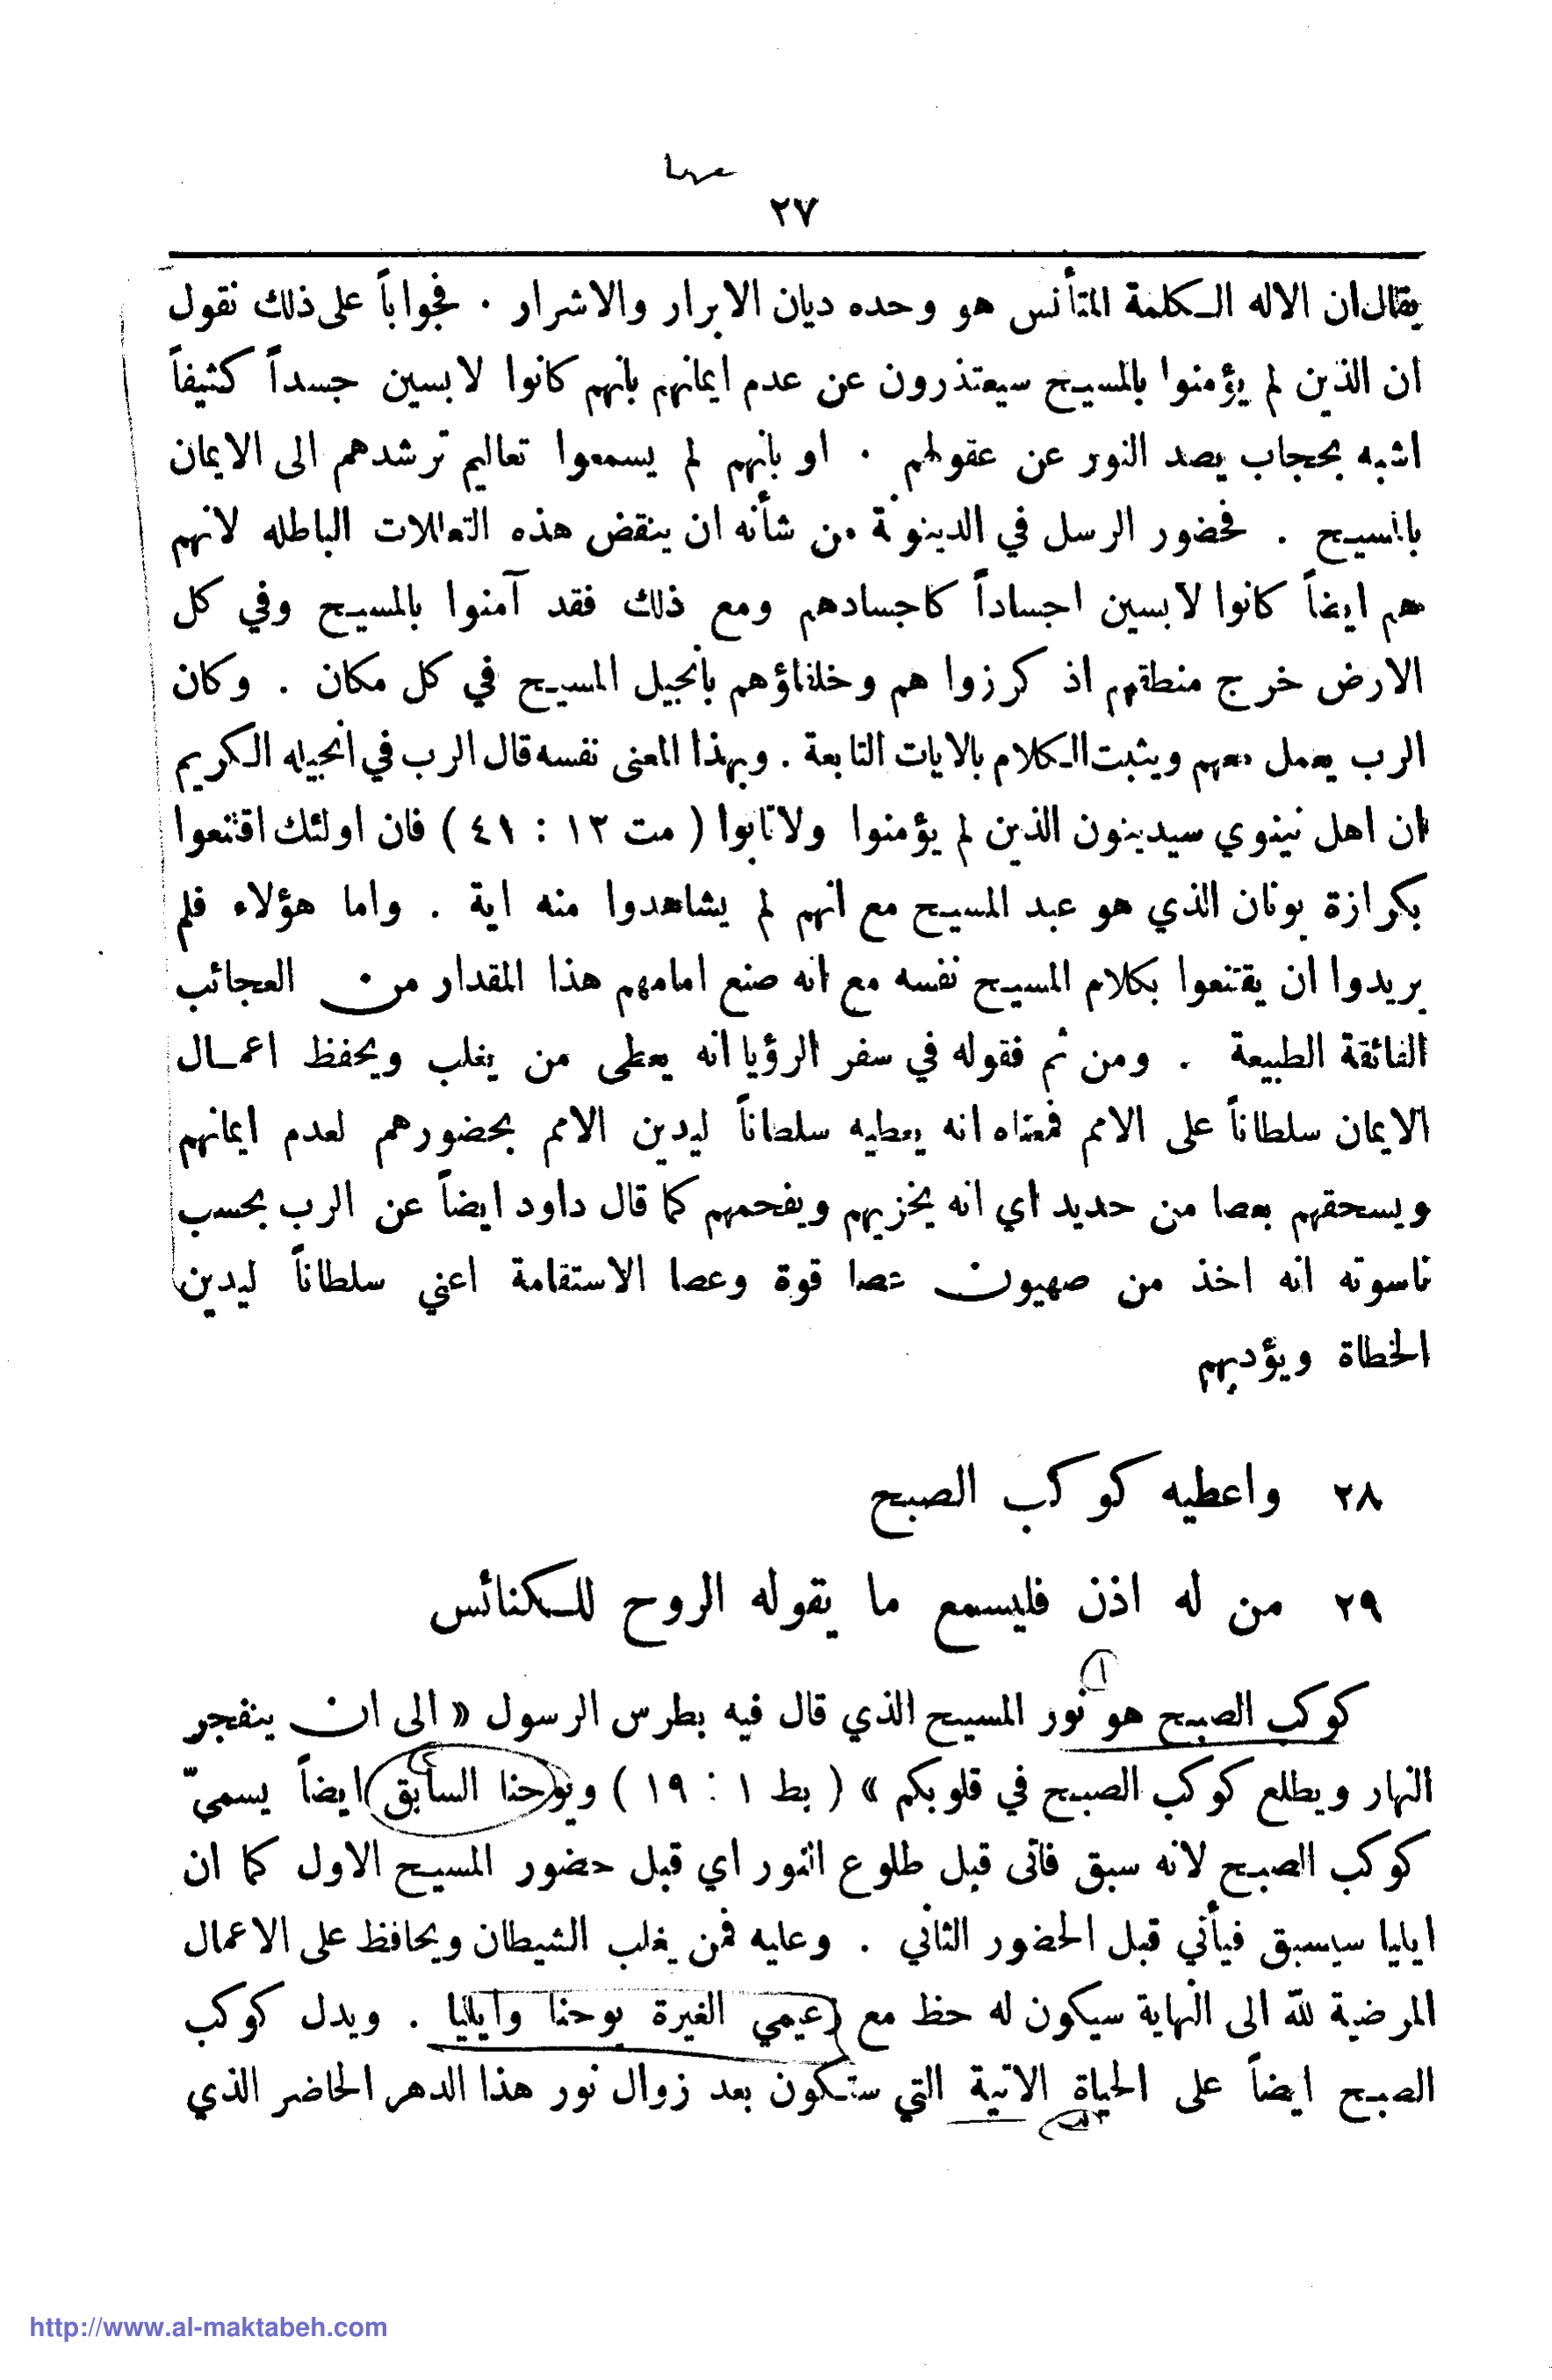 ٢٧
يقال ان الاله الكلمة المتأنس هو وحده ديان الابرار والاشرار . فجواباً على ذلك نقول
ان الذين لم يؤمنوا بالمسيح سيعتذرون عن عدم ايمانهم بانهم كانوا لابسين جسداً كثيفاً
اشبه بحجاب يصد النور عن عقولهم . او بانهم لم يسمعوا تعاليم ترشدهم الى الايمان
بالمسيح . فحضور الرسل في الدينونة من شأنه ان ينقض هذه التعاللات الباطله لانهم
هم ايضاً كانوا لابسين اجساداً كاجسادهم ومع ذلك فقد آمنوا بالمسيح وفي كل
الارض خرج منطقهم اذ كرزوا هم وخلفاؤهم بانجيل المسيح في كل مكان . وكان
الرب يعمل معهم ويثبت الكلام بالايات التابعة . وبهذا المعنى نفسه قال الرب في انجيله الكريم
ان اهل نينوي سيدينون الذين لم يؤمنوا ولا تابوا ( مت ١٢ : ٤١ ) فان اولئك اقتنعوا
بكرازة يونان الذي هو عبد المسيح مع انهم لم يشاهدوا منه اية . واما هؤلاء فلم
يريدوا ان يقتنعوا بكلام المسيح نفسه مع انه صنع امامهم هذا المقدار من العجائب
الفائقة الطبيعة . ومن ثم فقوله في سفر الرؤيا انه يعطى من يغلب ويحفظ اعمال
الايمان سلطاناً على الامم فمعناه انه يعطيه سلطاناً ليدين الامم بحضورهم لعدم ايمانهم
ويسحقهم بعصا من حديد اي انه يخزيهم ويفحمهم كما قال داود ايضاً عن الرب بحسب
ناسوته انه اخذ من صهيون عصا قوة وعصا الاستقامة اعني سلطاناً ليدين
الخطاة ويؤدبهم
٢٨ واعطيه كوكب الصبح
٢٩ من له اذن فليسمع ما يقوله الروح للكنائس
كوكب الصبح هو نور المسيح الذي قال فيه بطرس الرسول « الى ان ينفجر
النهار ويطلع كوكب الصبح في قلوبكم » ( بط ١ : ١٩ ) ويوحنا السابق ايضاً يسميّ
كوكب الصبح لانه سبق فاتى قبل طلوع النور اي قبل حضور المسيح الاول كما ان
ايليا سيسبق فيأتي قبل الحضور الثاني . وعليه فمن يغلب الشيطان ويحافظ على الاعمال
المرضية لله الى النهاية سيكون له حظ مع زعيمي الغيرة يوحنا وايليا . ويدل كوكب
الصبح ايضاً على الحياة الاتية التي ستكون بعد زوال نور هذا الدهر الحاضر الذي
http://www.al-maktabeh.com